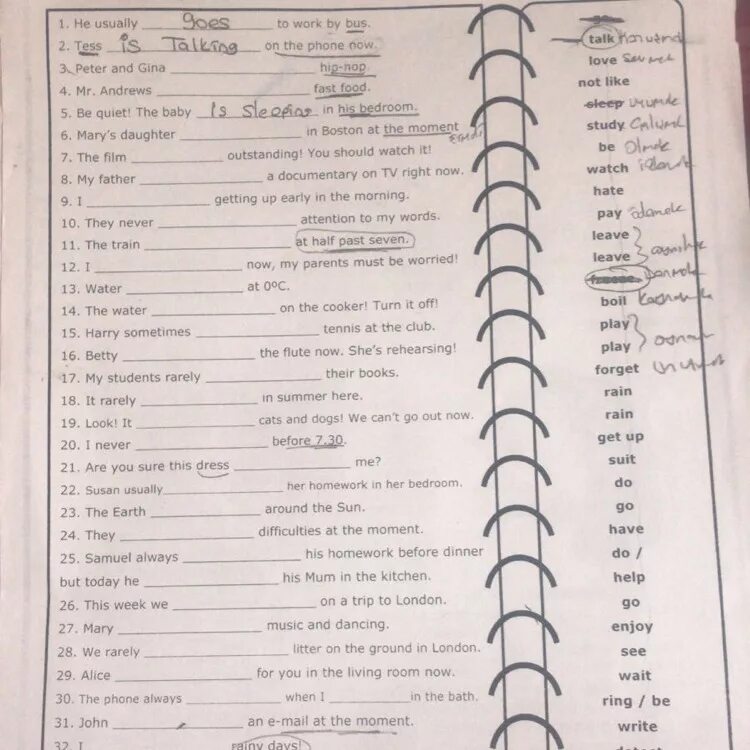 1. He usually goes to work by bus.
2. Tess is Talking on the phone now.
3. Peter and Gina ____________ hip-hop.
4. Mr. Andrews ____________ fast food.
5. Be quiet! The baby is sleeping in his bedroom.
6. Mary's daughter ____________ in Boston at the moment
7. The film ____________ outstanding! You should watch it!
8. My father ____________ a documentary on TV right now.
9. I ____________ getting up early in the morning.
10. They never ____________ attention to my words.
11. The train ____________ at half past seven.
12. I ____________ now, my parents must be worried!
13. Water ____________ at 0ºC.
14. The water ____________ on the cooker! Turn it off!
15. Harry sometimes ____________ tennis at the club.
16. Betty ____________ the flute now. She's rehearsing!
17. My students rarely ____________ their books.
18. It rarely ____________ in summer here.
19. Look! It ____________ cats and dogs! We can't go out now.
20. I never ____________ before 7.30.
21. Are you sure this dress ____________ me?
22. Susan usually____________ her homework in her bedroom.
23. The Earth ____________ around the Sun.
24. They ____________ difficulties at the moment.
25. Samuel always ____________ his homework before dinner
but today he ____________ his Mum in the kitchen.
26. This week we ____________ on a trip to London.
27. Mary ____________ music and dancing.
28. We rarely ____________ litter on the ground in London.
29. Alice ____________ for you in the living room now.
30. The phone always ____________ when I ____________ in the bath.
31. John ____________ an e-mail at the moment.
32. I rainy days!
talk
love
not like
sleep
study
be olmak
watch
hate
pay ödemek
leave
leave
freeze
boil
play
play
forget
rain
rain
get up
suit
do
go
have
do /
help
go
enjoy
see
wait
ring / be
write
detest